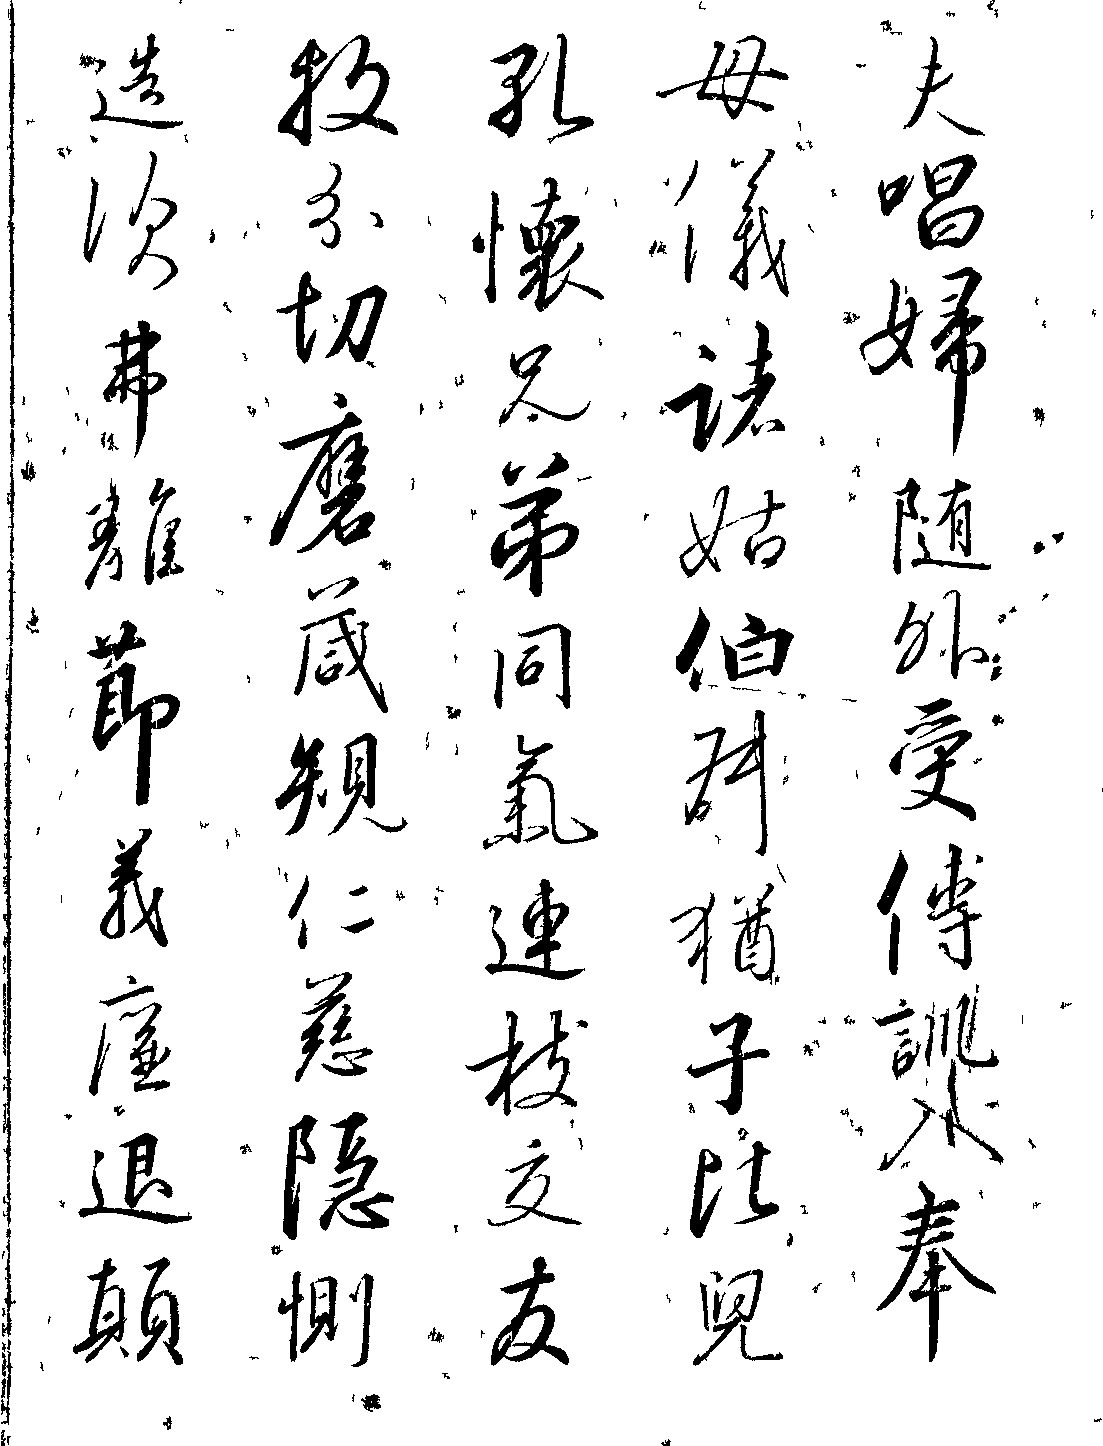 夫唱婦随外受傅訓入奉
母儀諸姑伯叔猶子比兒
孔懷兄弟同氣連枝交友
投分切磨葴規仁慈隠惻
造次弗離莭義廉退顛